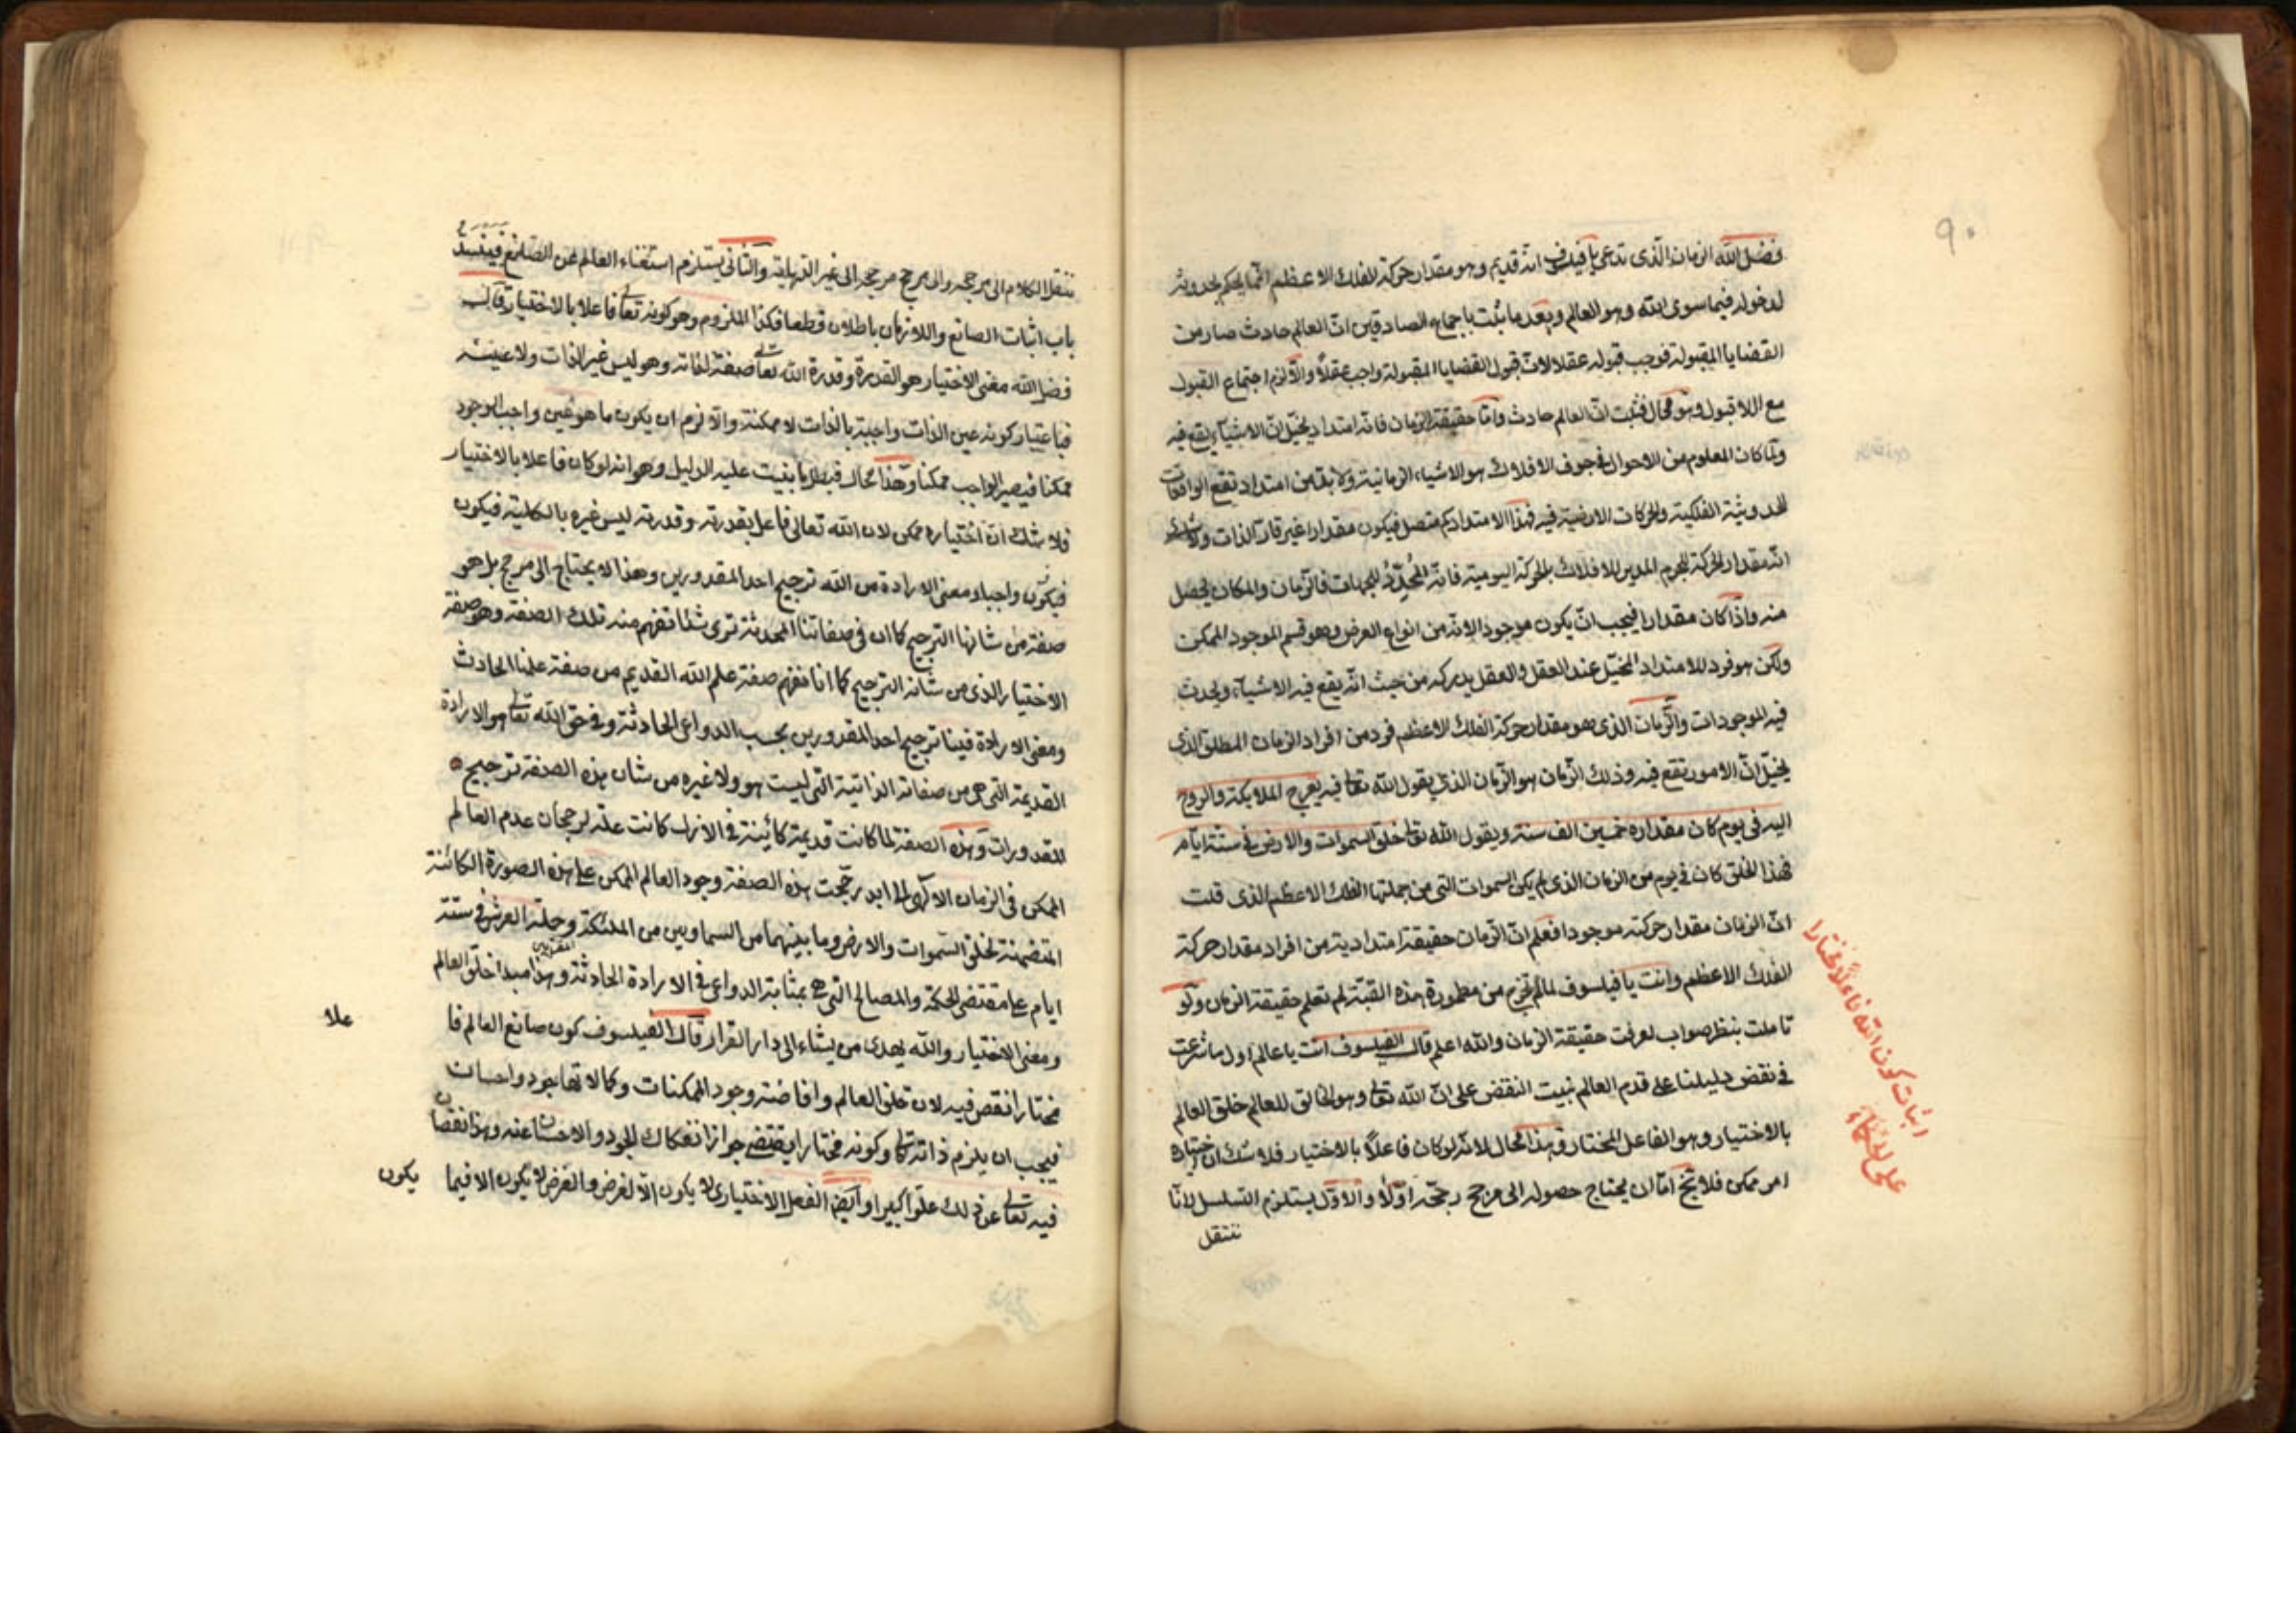 ٩٠
فضل الله الزمان الذى تدعى يا فيلسوف انه قديم وهو مقدار حركة الفلك الاعظم انما يحكم بحدوثه
لدخوله فيما سوى الله وهو العالم وبعد ما ثبت باجماع الصادقين انّ العالم حادث صار من
القضايا المقبولة فوجب قبوله عقلا لانّ قبول القضايا المقبولة واجب عقلاً والّا لزم اجتماع القبول
مع اللاقبول وهو محال فثبت انّ العالم حادث وامّا حقيقة الزمان فانه امتداد يخيّل انّ الاشياء يقع فيه
ولمّا كان المعلوم من الاحوال فى جوف الافلاك هو الاشياء الزمانية ولا بدّ من امتداد تقع الواقعات
الحدوثية الفلكية والحركات الارضية فيه فهذا الامتداد كم متصل فيكون مقدارا غير قارّ الذات ولا شك
انّه مقدار الحركة للجرم المدير للافلاك بالحركة اليومية فانّه المُحدِّدُ للجهات فالزمان والمكان يحصل
منه واذا كان مقدارا فيجب انّ يكون موجودا لانّه من انواع العرض وهو قسم الموجود الممكن
ولكن هو فرد للامتداد المخيّل عند العقل والعقل يدركه من حيث انّه يقع فيه الاشياء ويحدث
فيه الموجودات والزمان الذى هو مقدار حركة الفلك الاعظم فرد من افراد الزمان المطلق الذى
يخيّل انّ الامور تقع فيه وذلك الزمان هو الزمان الذى يقول الله تعالى فيه يعرج الملايكة والروح
اليه فى يوم كان مقداره خمسين الف سنة ويقول الله تعالى خلق السموات والارض فى ستة ايّام
فهذا الخلق كان فى يوم من الزمان الذى لم يكن السموات التى من جملتها الفلك الاعظم الذى قلت
انّ الزمان مقدار حركته موجودا فعلم انّ الزمان حقيقة امتدادية من افراد مقدار حركة
الفلك الاعظم وانت يا فيلسوف لما لم تخرج من مطمورة هذه القبّة لم تعلم حقيقة الزمان ولو
تاملت بنظر صواب لعرفت حقيقة الزمان والله اعلم قال الفيلسوف انت يا عالم اول ما شرعت
فى نقض دليلنا على قدم العالم بنيت النقض على انّ الله تعالى وهو الخالق للعالم خلق العالم
بالاختيار وهو الفاعل المختار وهذا محال لانّه لو كان فاعلاً بالاختيار فلا شك ان اختياره
امر ممكن فلا يخ امّا ان يحتاج حصوله الى مرجح رجحه اوّلاً والاوّل يستلزم التسلسل لانّا
ننتقل
اثبات كون الله فاعلاً مختارا
على الحكماء
ننتقل الكلام الى مرجحه والى مرجح مرجحه الى غير النهاية والثانى يستلزم استغناء العالم عن الصانع فينسد
باب اثبات الصانع واللازمان باطلان قطعا فكذا الملزوم وهو كونه تعالى فاعلا بالاختيار قال
فضل الله معنى الاختيار هو القدرة وقدرة الله تعالى صفة لذاته وهو ليس غير الذات ولا عينه
فباعتبار كونه عين الذات واجبة بالذات لا ممكنة والا لزم ان يكون ما هو عين واجب الوجود
ممكنا فيصير الواجب ممكنا وهذا محال فبطل ما بنيت عليه الدليل وهو انه لو كان فاعلا بالاختيار
فلا شك انّ اختياره ممكن لان الله تعالى فاعل بقدرته وقدرته ليس غيره بالكلية فيكون
فيكون واجبا ومعنى الارادة من الله ترجيح احد المقدورين وهذا لا يحتاج الى مرجح بل هو
صفة من شانها الترجيح كما ان فى صفاتنا المحدثة ترى شئا تفهم منه تلك الصفة وهو صفة
الاختيار الذى من شانه الترجيح كما انا نفهم صفة علم الله القديم من صفة علمنا الحادث
ومعنى الارادة فينا ترجيح احد المقدورين بحسب الدواعى الحادثة وفى حق الله تعالى هو الارادة
القديمة التى هى من صفاته الذاتية التى ليست هو ولا غيره من شان هذه الصفة ترجيح
المقدورات وهذه الصفة لما كانت قديمة كائينة فى الازل كانت علة لرجحان عدم العالم
الممكن فى الزمان الازلى الى ابد رجّحت هذه الصفة وجود العالم الممكن على هذه الصورة الكائنة
المتضمنة لخلق السموات والارض وما بينهما من السماويين من الملئكة وحملة العرش فى ستة
ايام على مقتضى الحكمة والمصالح التى هى بمثابة الدواعى فى الارادة الحادثة وهذا مبدا خلق العالم
ومعنى الاختيار والله يهدى من يشاء الى دار القرار قال الفيلسوف كون صانع العالم فا
علا
مختارا نقص فيه لان خلق العالم وافاضة وجود الممكنات وكمالاتها جود واحسان
فيجب ان يلزم ذاته تعالى وكونه مختارا يقتضى جواز انفكاك الجود والاحسان عنه وهذا نقصان
فيه تعالى عن ذلك علوّا كبيرا وايضا الفعل الاختيارى لا يكون الّا لغرض والغرض لا يكون الا فيما
يكون